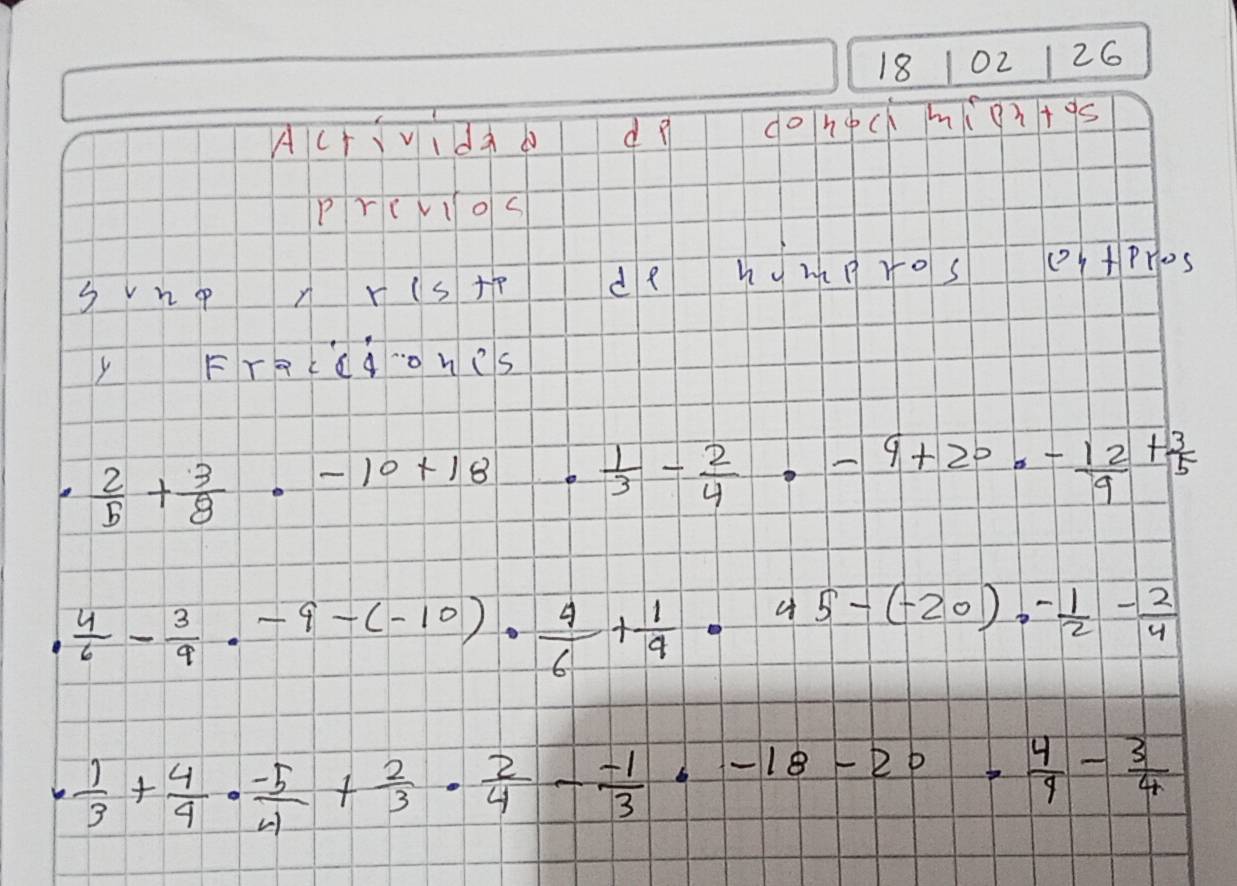 18 | 02 | 26
Actividad de conocimientos
previos
Suma y resta de números enteros
y Fracciones
• 2/5 + 3/8 • -10+18 • 1/3 - 2/4 • -9+20 • -12/9 + 3/5
• 4/6 - 3/9 • -9-(-10) • 4/6 + 1/9 • 45-(-20) • -1/2 - 2/4
• 1/3 + 4/9 • -5/4 + 2/3 • 2/4 - -1/3 • -18-20 • 4/9 - 3/4